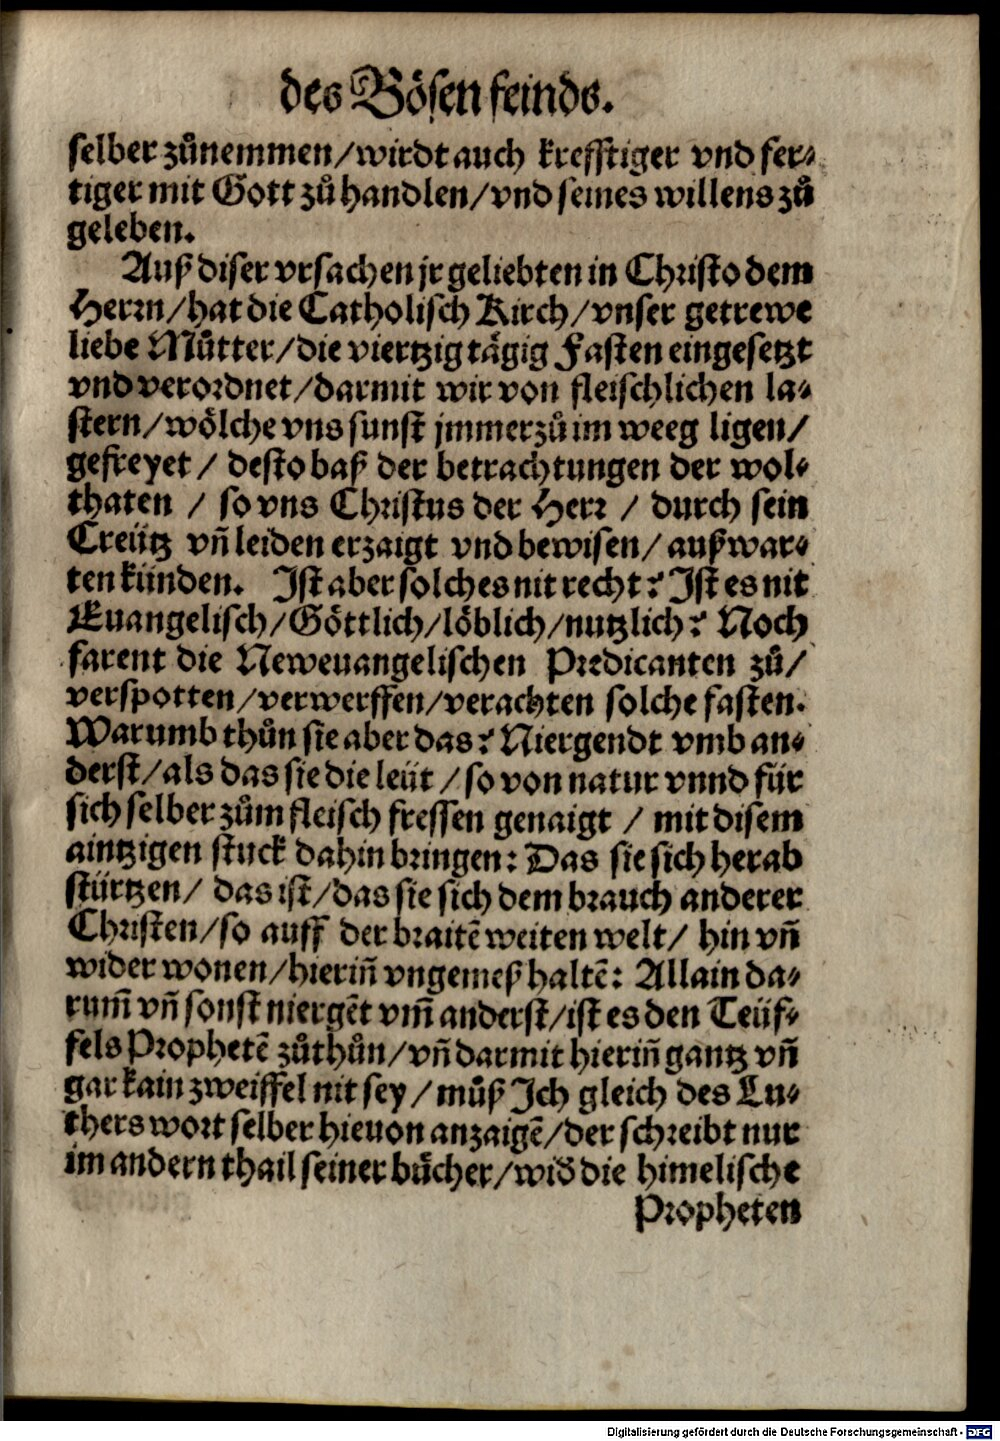 des Bösen feinds.
selber zůnemmen/wirdt auch krefftiger vnd fer⸗
tiger mit Gott zů handlen/vnd seines willens zů
geleben.
Auß diser vrsachen jr geliebten in Christo dem
Herrn/hat die Catholisch Kirch/vnser getrewe
liebe Můtter/die viertzig tägig Fasten eingesetzt
vnd verordnet/darmit wir von fleischlichen la⸗
stern/wölche vns sunst jmmerzů im weeg ligen/
gefreyet / desto baß der betrachtungen der wol⸗
thaten / so vns Christus der Herr / durch sein
Creütz vñ leiden erzaigt vnd bewisen/ außwar⸗
ten künden. Ist aber solches nit recht? Ist es nit
Euangelisch/Göttlich/löblich/nutzlich? Noch
farent die Neweuangelischen Predicanten zů/
verspotten/verwerffen/verachten solche fasten.
Warumb thůn sie aber das? Niergendt vmb an⸗
derst/als das sie die leüt /so von natur vnnd für
sich selber zům fleisch fressen genaigt / mit disem
aintzigen stuck dahin bringen: Das sie sich herab
stürtzen/ das ist/das sie sich dem brauch anderer
Christen/so auff der braitē weiten welt/ hin vñ
wider wonen/hieriñ vngemeß haltē: Allain da⸗
rum̃ vñ sonst niergēt vm̃ anderst/ist es den Teüf⸗
fels Prophetē zůthůn/vñ darmit hieriñ gantz vñ
gar kain zweiffel nit sey/můß Ich gleich des Lu⸗
thers wort selber hieuon anzaigē/der schreibt nur
im andern thail seiner bücher/wid̃ die himelische
Propheten
Digitalisierung gefördert durch die Deutsche Forschungsgemeinschaft - DFG